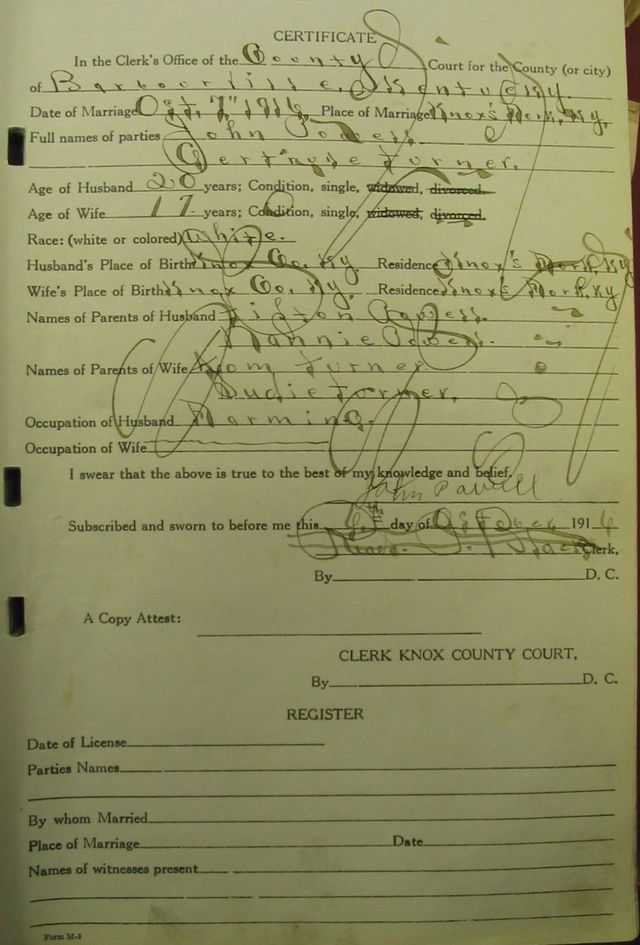 CERTIFICATE
In the Clerk's Office of the County Court for the County (or city)
of Barbourville, Kentucky.
Date of Marriage Oct. 7" 1916, Place of Marriage Knox's Fork, Ky,
Full names of parties John Powell.
Gertrude Turner,
Age of Husband 20 years; Condition, single, widowed, divorced.
Age of Wife 17 years; Condition, single, widowed, divorced.
Race: (white or colored) White.
Husband's Place of Birth Knox Co. Ky. Residence Knox's Fork, Ky
Wife's Place of Birth Knox Co. Ky, Residence Knox's Fork, Ky
Names of Parents of Husband
Nannie
Names of Parents of Wife Tom Turner
Turner,
Occupation of Husband Farming.
Occupation of Wife
I swear that the above is true to the best of my knowledge and belief.
John Powell
Subscribed and sworn to before me this 6th day of October 1916
Clerk,
By D. C.
A Copy Attest:
CLERK KNOX COUNTY COURT,
By D. C.
REGISTER
Date of License
Parties Names
By whom Married
Place of Marriage Date
Names of witnesses present
Form M-3